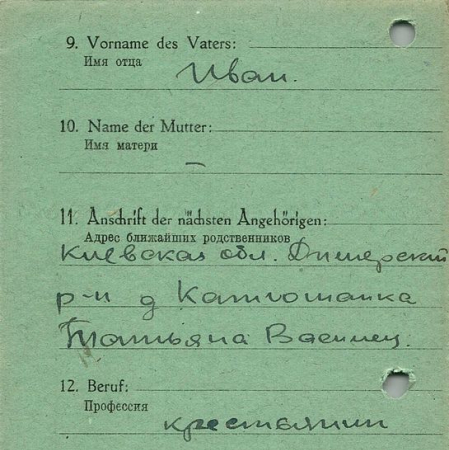 9. Vorname des Vaters:
Имя отца
Иван.
10. Name der Mutter:
Имя матери
–
11. Anschrift der nächsten Angehörigen:
Адрес ближайших родственников
Киевская обл. Дымерский
р-н д Катюжанка
Татьяна
12. Beruf:
Профессия
крестьянин